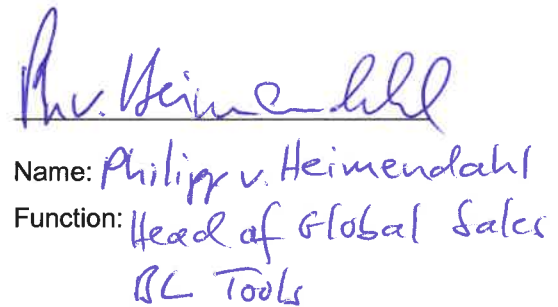 Ph v. Heimendahl
Name: Philipp v. Heimendahl
Function: Head of Global Sales
BC Tools